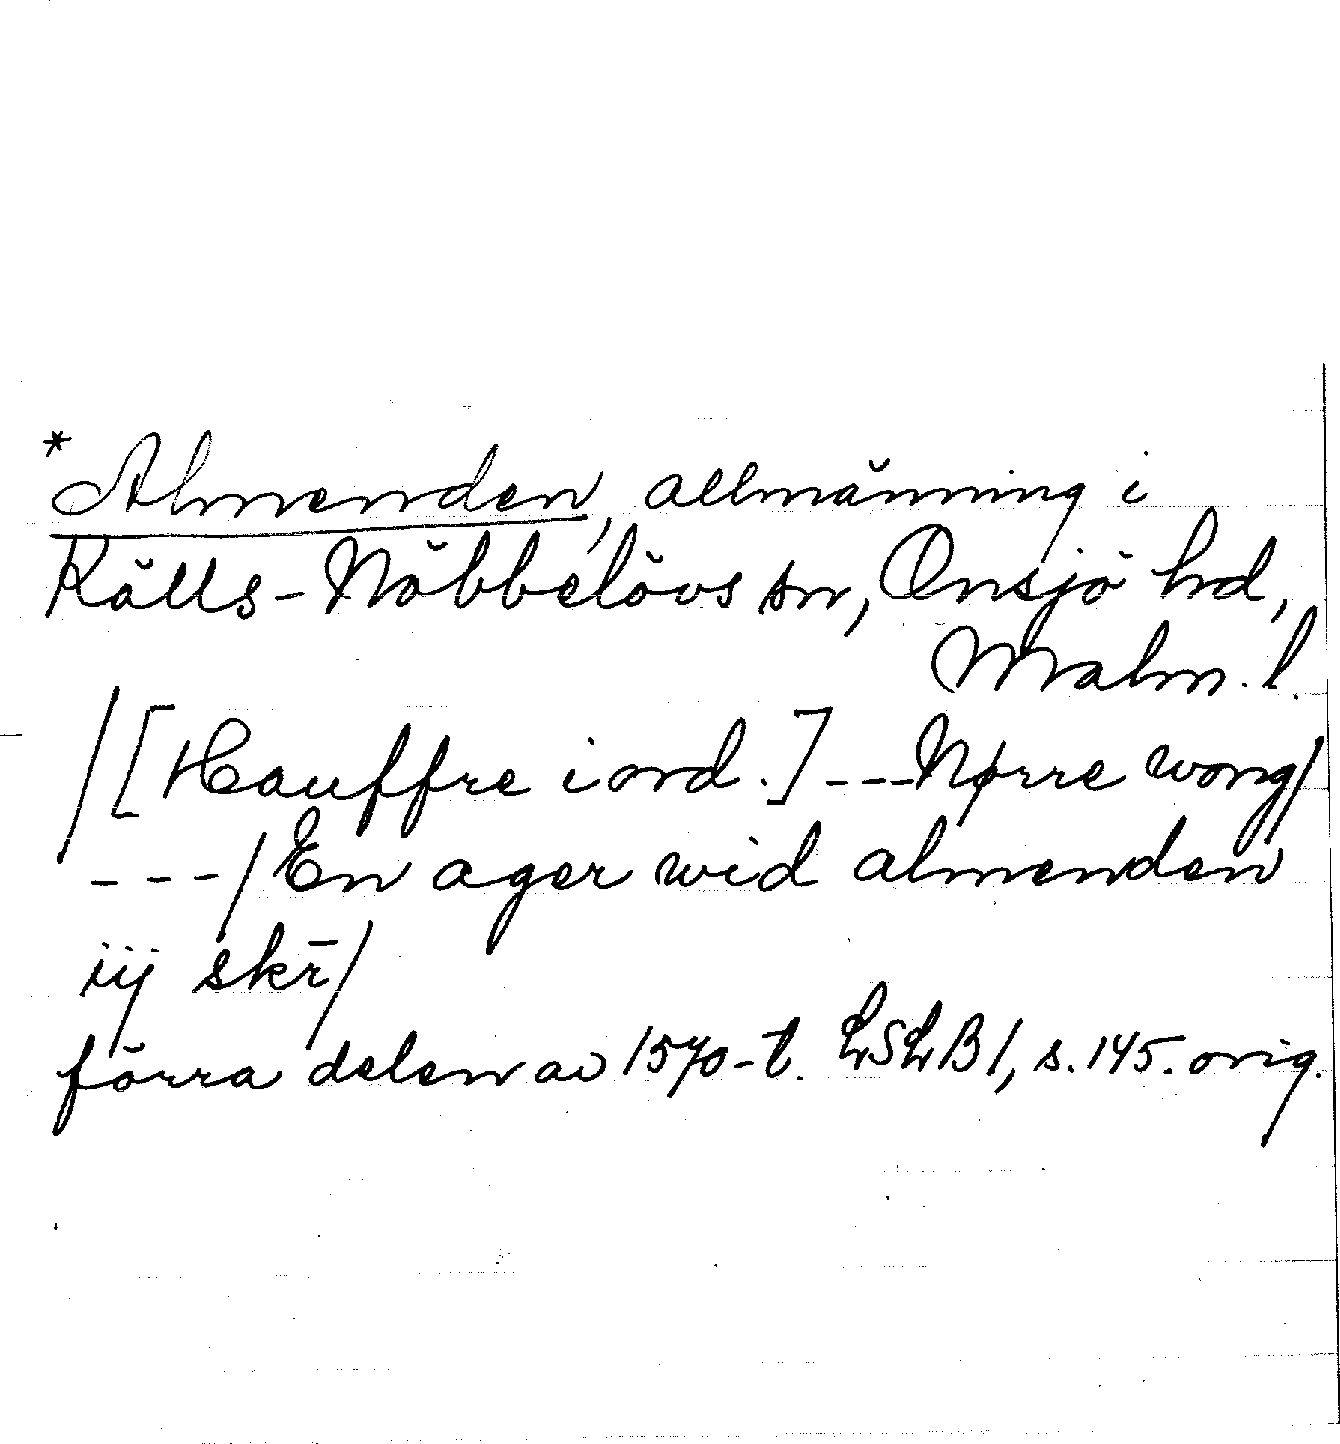 *Almenden, allmänning i
Källs-Nöbbelövs sn, Onsjö hd,
Malm. l.
/[Hauffre iord.]---Nørre wong/
---/En ager wid almenden
iij skr̄/
förra delen av 1570-t. LSLB 1, s. 145. orig.